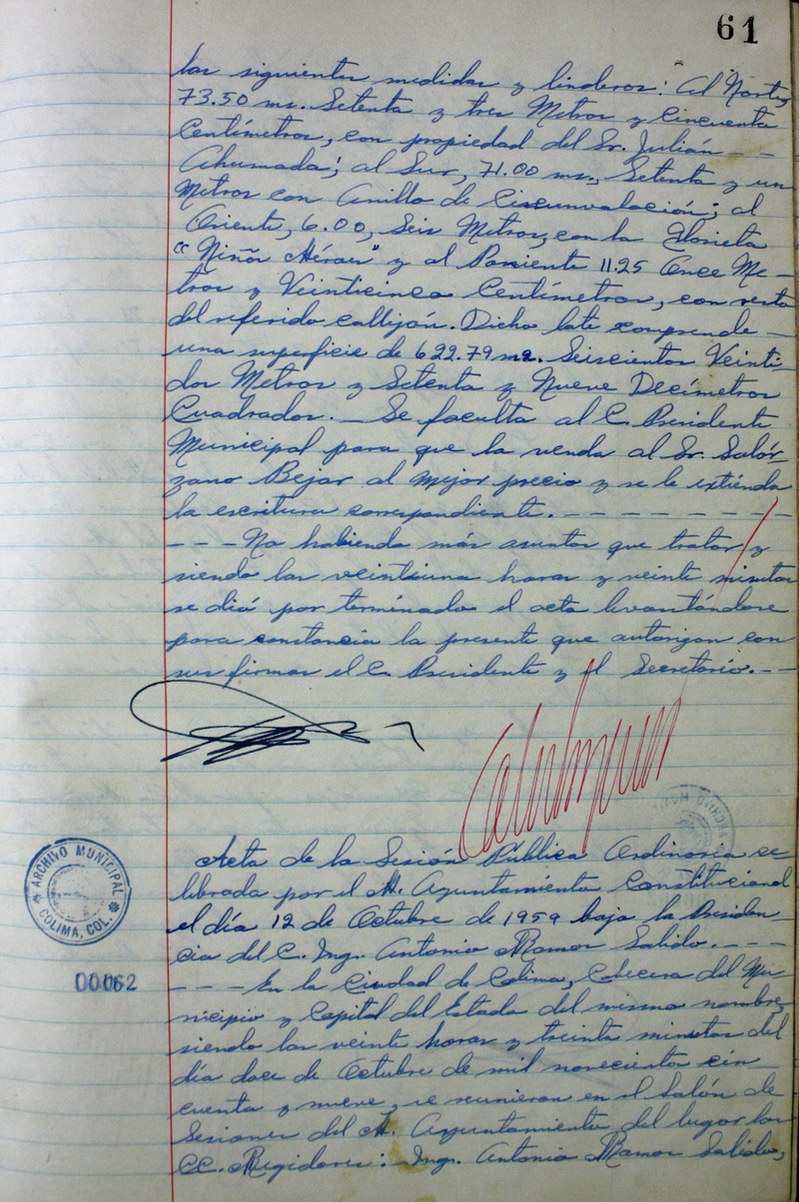 61
las siguientes medidas y linderos: Al Norte,
73.50 ms. Setenta y tres Metros y Cincuenta
Centímetros, con propiedad del Sr. Julián - -
Ahumada; al Sur, 71.00 ms., Setenta y un
Metros con Anillo de Circunvalación; al
Oriente, 6.00, Seis Metros, con la Glorieta
"Niños Héroes" y al Poniente 11.25 Once Me-
tros y Veinticinco Centímetros, con resto
del referido callejón. Dicho lote comprende -
una superficie de 622.79 m2. Seiscientos Veinti-
dos Metros y Setenta y Nueve Decímetros
Cuadrados. - Se faculta al C. Presidente
Municipal para que la venda al Sr. Solór-
zano Bejar al mejor precio y se le extienda
la escritura correspondiente. - - - - - - - -
- - - No habiendo más asuntos que tratar y
siendo las veintiuna horas y veinte minutos
se dió por terminado el acta levantándose
para constancia la presente que autorizan con
sus firmas el C. Presidente y el Secretario. - -
Acta de la Sesión Pública Ordinaria ce-
lebrada por el H. Ayuntamiento Constitucional
el día 12 de Octubre de 1959 bajo la Presiden-
cia del C. Ing. Antonio Ramos Salido. - - -
- - - En la Ciudad de Colima, Cabecera del Mu-
nicipio y Capital del Estado del mismo nombre,
siendo las veinte horas y treinta minutos del
día doce de Octubre de mil novecientos cin-
cuenta y nueve, se reunieron en el Salón de
Sesiones del H. Ayuntamiento del lugar los
CC. Regidores: Ing. Antonio Ramos Salido,
ARCHIVO MUNICIPAL
COLIMA, COL.
00062